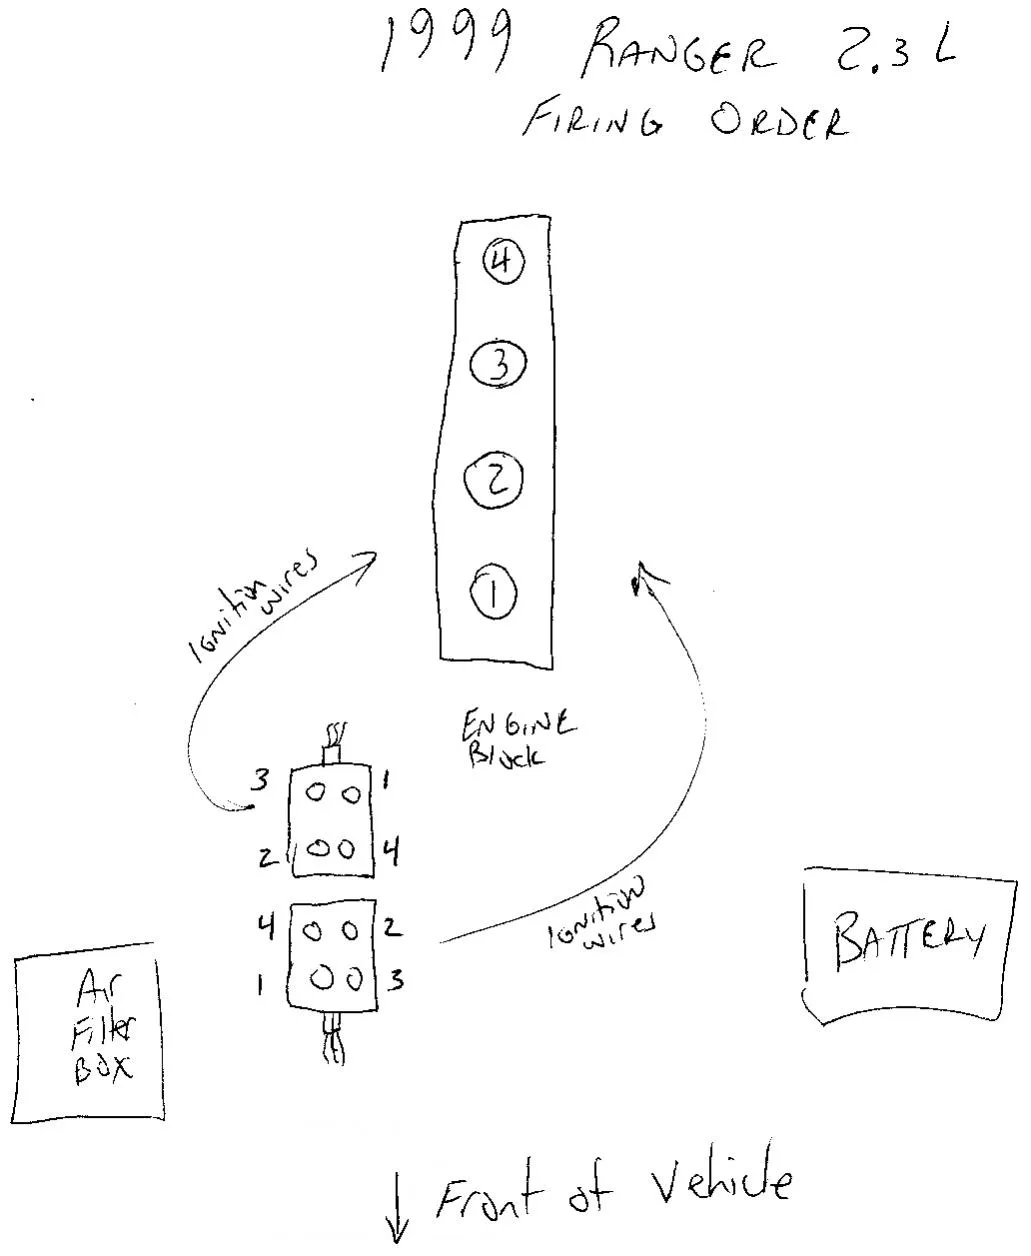 1999 RANGER 2.3 L
FIRING ORDER
4
3
2
1
Ignition
wires
ENGINE
Block
3 1
2 4
4 2
1 3
Ignition
wires
BATTERY
Air
Filter
BOX
Front of Vehicle